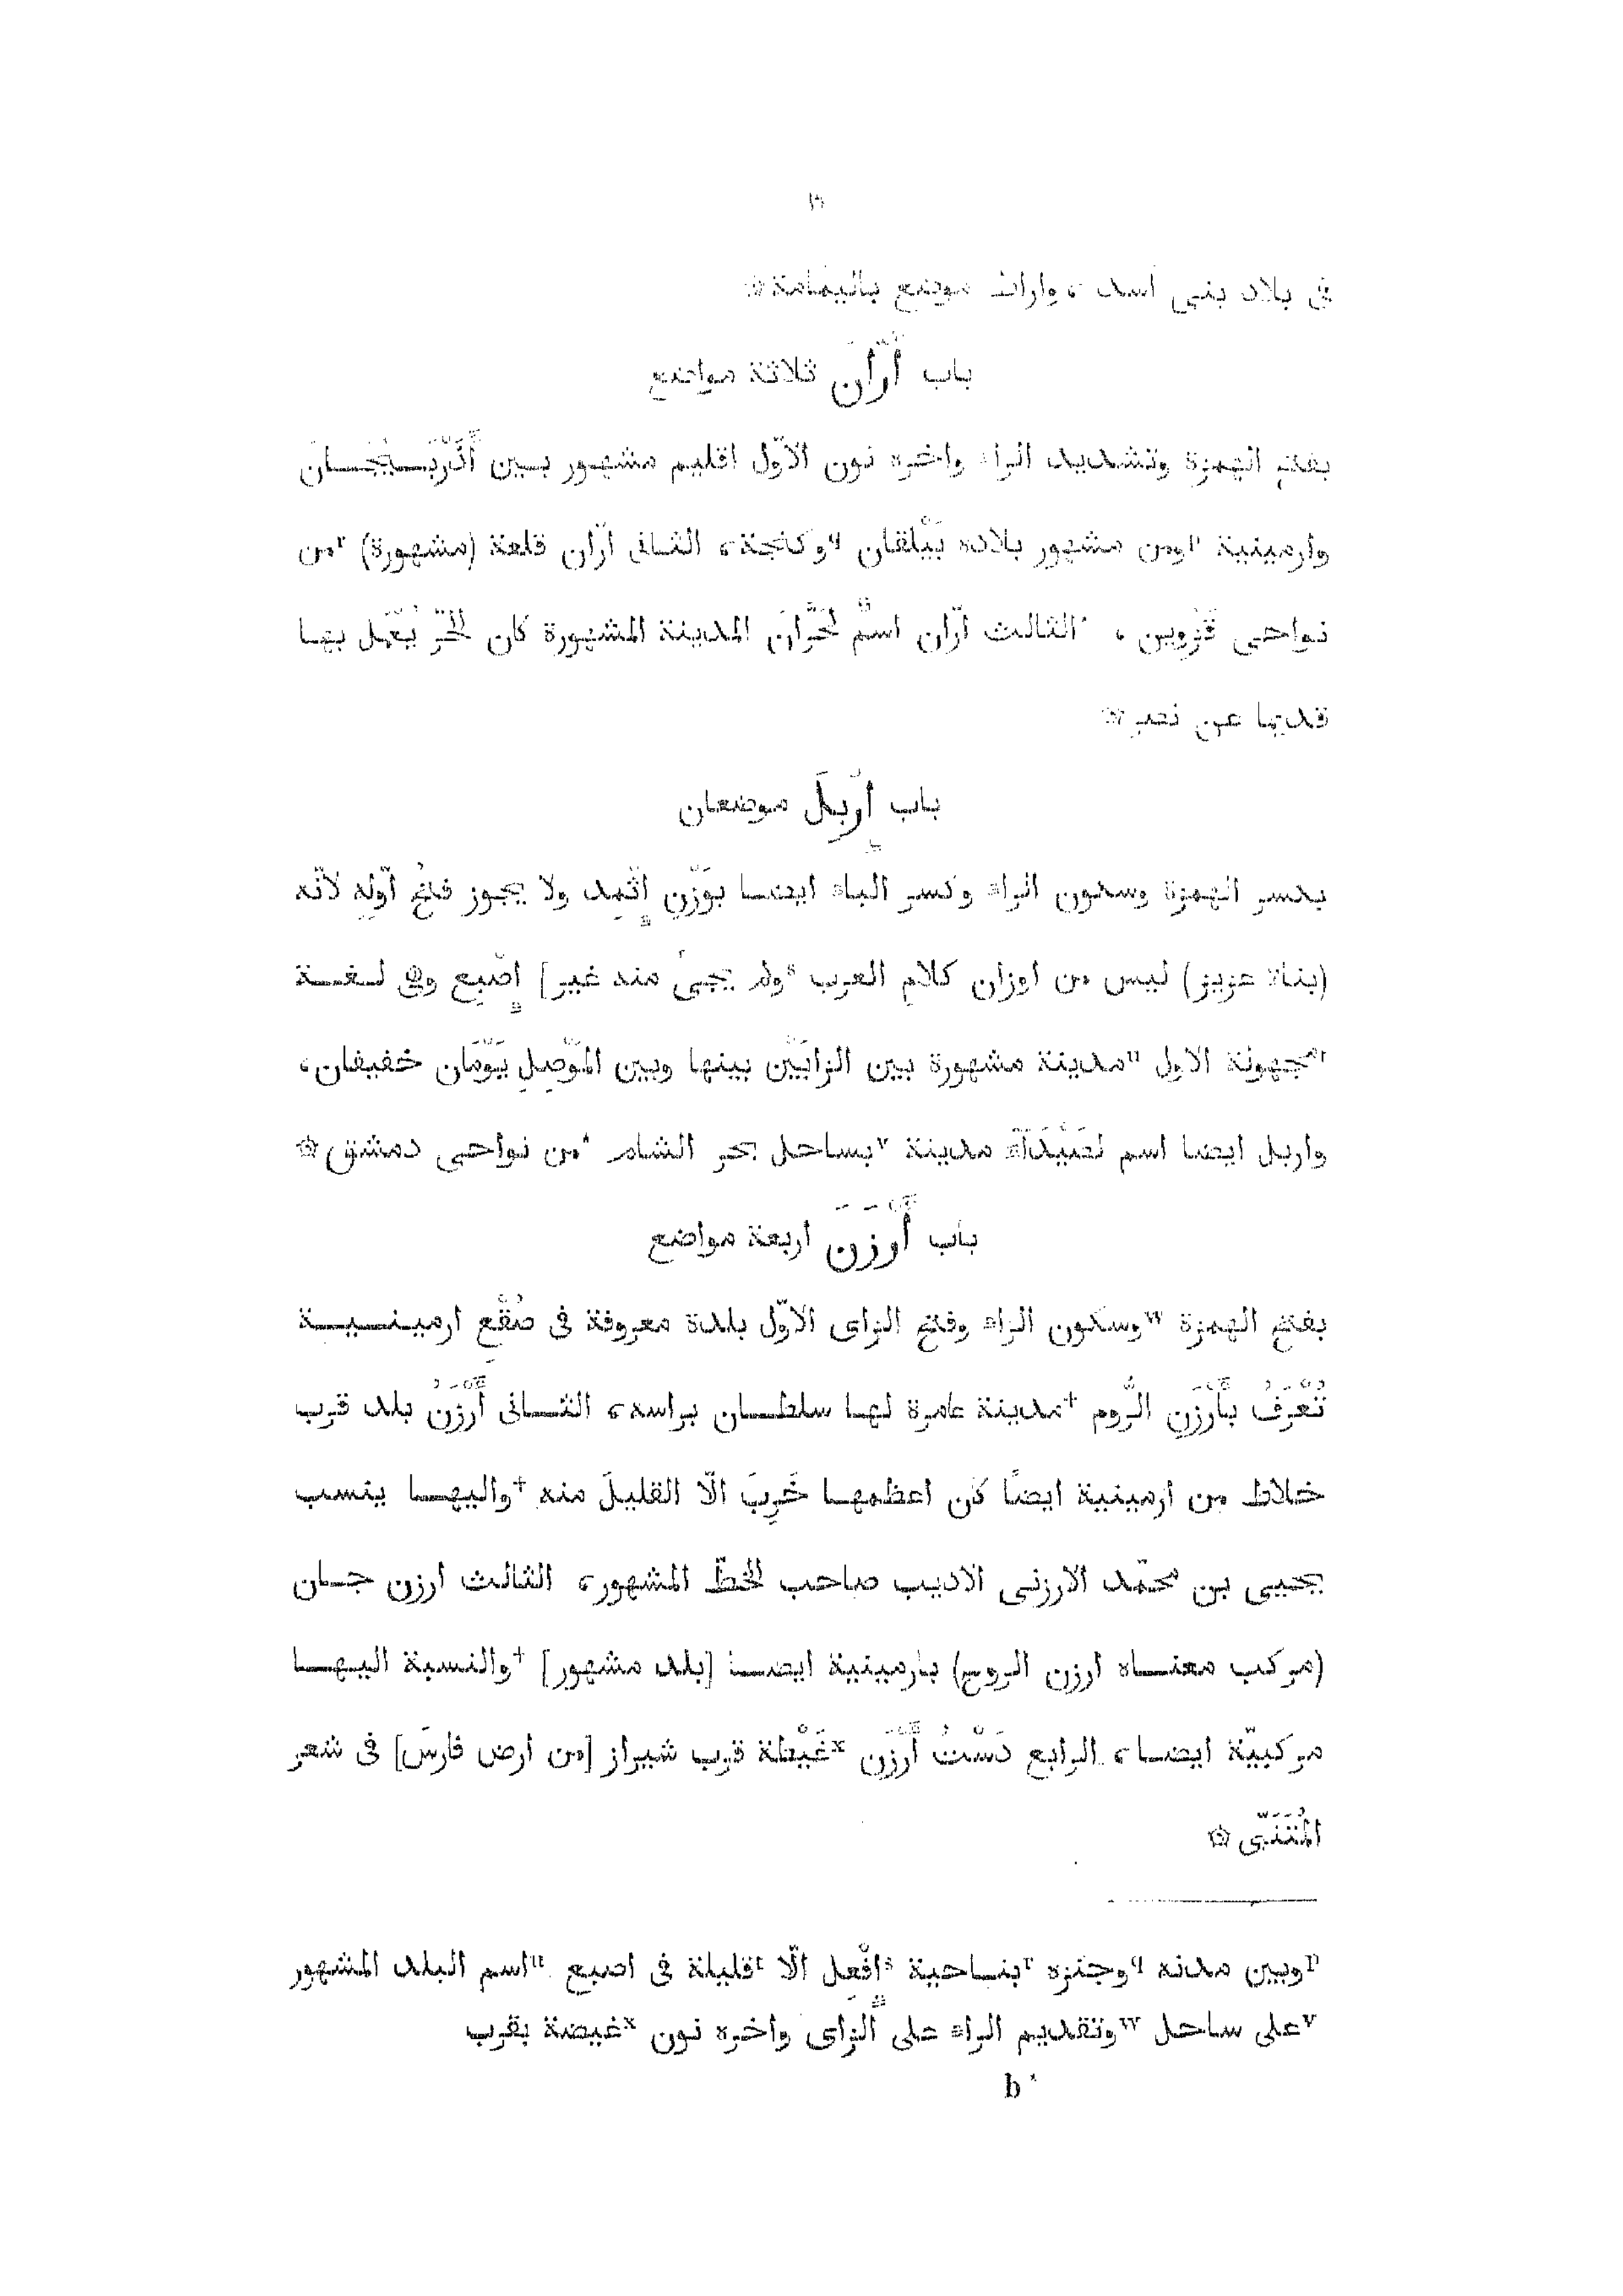 ١٦
فى بلاد بنى اسد ، واراك موضع باليمامة ۞
باب أَرَّان ثلاثة مواضع
بفتح الهمزة وتشديد الراء واخره نون الاوّل اقليم مشهور بـين أَذْرَبـيجَـان
وارمينية pومن مشهور بلاده بَيْلقان qوكنجة، الثانى ارّان قلعة (مشهورة) rمن
نواحى قَزْوين ، الثالث ارّان اسمٌ لحَرَّان المدينة المشهورة كان الخَزّ يُعْمَل بها
قديما عن نصر ۞
باب إِرْبِل موضعان
بكسر الهمزة وسكون الراء وكسر الباء ايضا بوَزْنِ إِثْمِد ولا يجوز فتحُ اوّله لانّه
(بناء عزيز) ليس من اوزان كلام العرب sولم يجىء منه غير] إِصْبِع وهى لـغـة
tمجهولة الاول uمدينة مشهورة بين الزابَيْن بينها وبين المَوْصِل يَوْمَان خفيفان،
واربل ايضا اسم لصَيْدَاء مدينة vبساحل بحر الشام *من نواحى دمشق ۞
باب أَرْزَن اربعة مواضع
بفتح الهمزة wوسكون الراء وفتح الزاى الاوّل بلدة معروفة فى صُقْعِ ارمينـيـة
تُعْرَفُ بأَرْزَنِ الرُّوم †مدينة عامرة لها سلطان براسه، الثانى أَرْزَنُ بلد قرب
خلاط من ارمينية ايضًا كان اعظمها خَرِبَ الّا القليلَ منه †واليهـا ينسب
يحيى بن محمّد الارزنى الاديب صاحب الخطّ المشهور، الثالث ارزن جـان
(مركب معناه ارزن الروح) بارمينية ايضا [بلد مشهور] †والنسبة اليهـا
مركبيّة ايضا، الرابع دَشْتُ أَرْزَن xغَيْطلة قرب شيراز [من ارض فارسَ] فى شعر
المُتَنَبّى ۞
pوبين مدنه qوجنزه rبنـاحية sإِفْعِل الّا tقليلة فى اصبع uاسم البلد المشهور
vعلى ساحل wوتقديم الراء على الزاى واخره نون xغيضة بقرب
b*